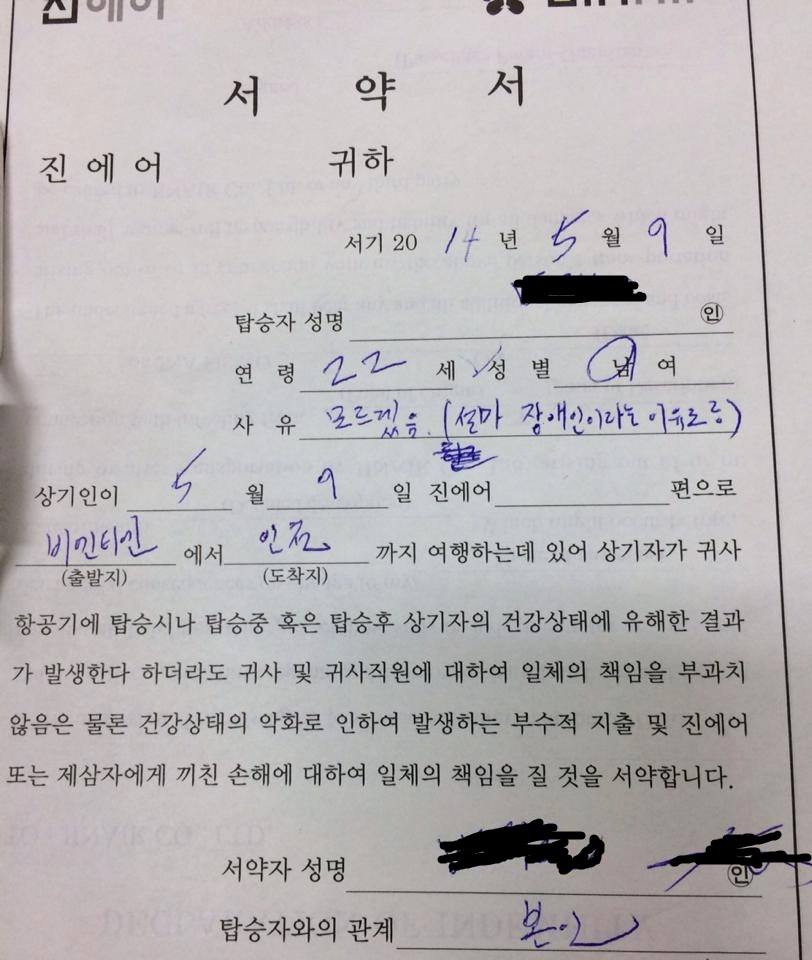 진에어
서 약 서
진 에 어 귀하
서기 20 14 년 5 월 9 일
탑승자 성명 인
연 령 22 세 성 별 남 여
사 유 모르겠음. (설마 장애인이라는 이유로)
상기인이 5 월 9 일 진에어 편으로
비엔티안 에서 인천 까지 여행하는데 있어 상기자가 귀사
(출발지) (도착지)
항공기에 탑승시나 탑승중 혹은 탑승후 상기자의 건강상태에 유해한 결과
가 발생한다 하더라도 귀사 및 귀사직원에 대하여 일체의 책임을 부과치
않음은 물론 건강상태의 악화로 인하여 발생하는 부수적 지출 및 진에어
또는 제삼자에게 끼친 손해에 대하여 일체의 책임을 질 것을 서약합니다.
서약자 성명 인
탑승자와의 관계 본인